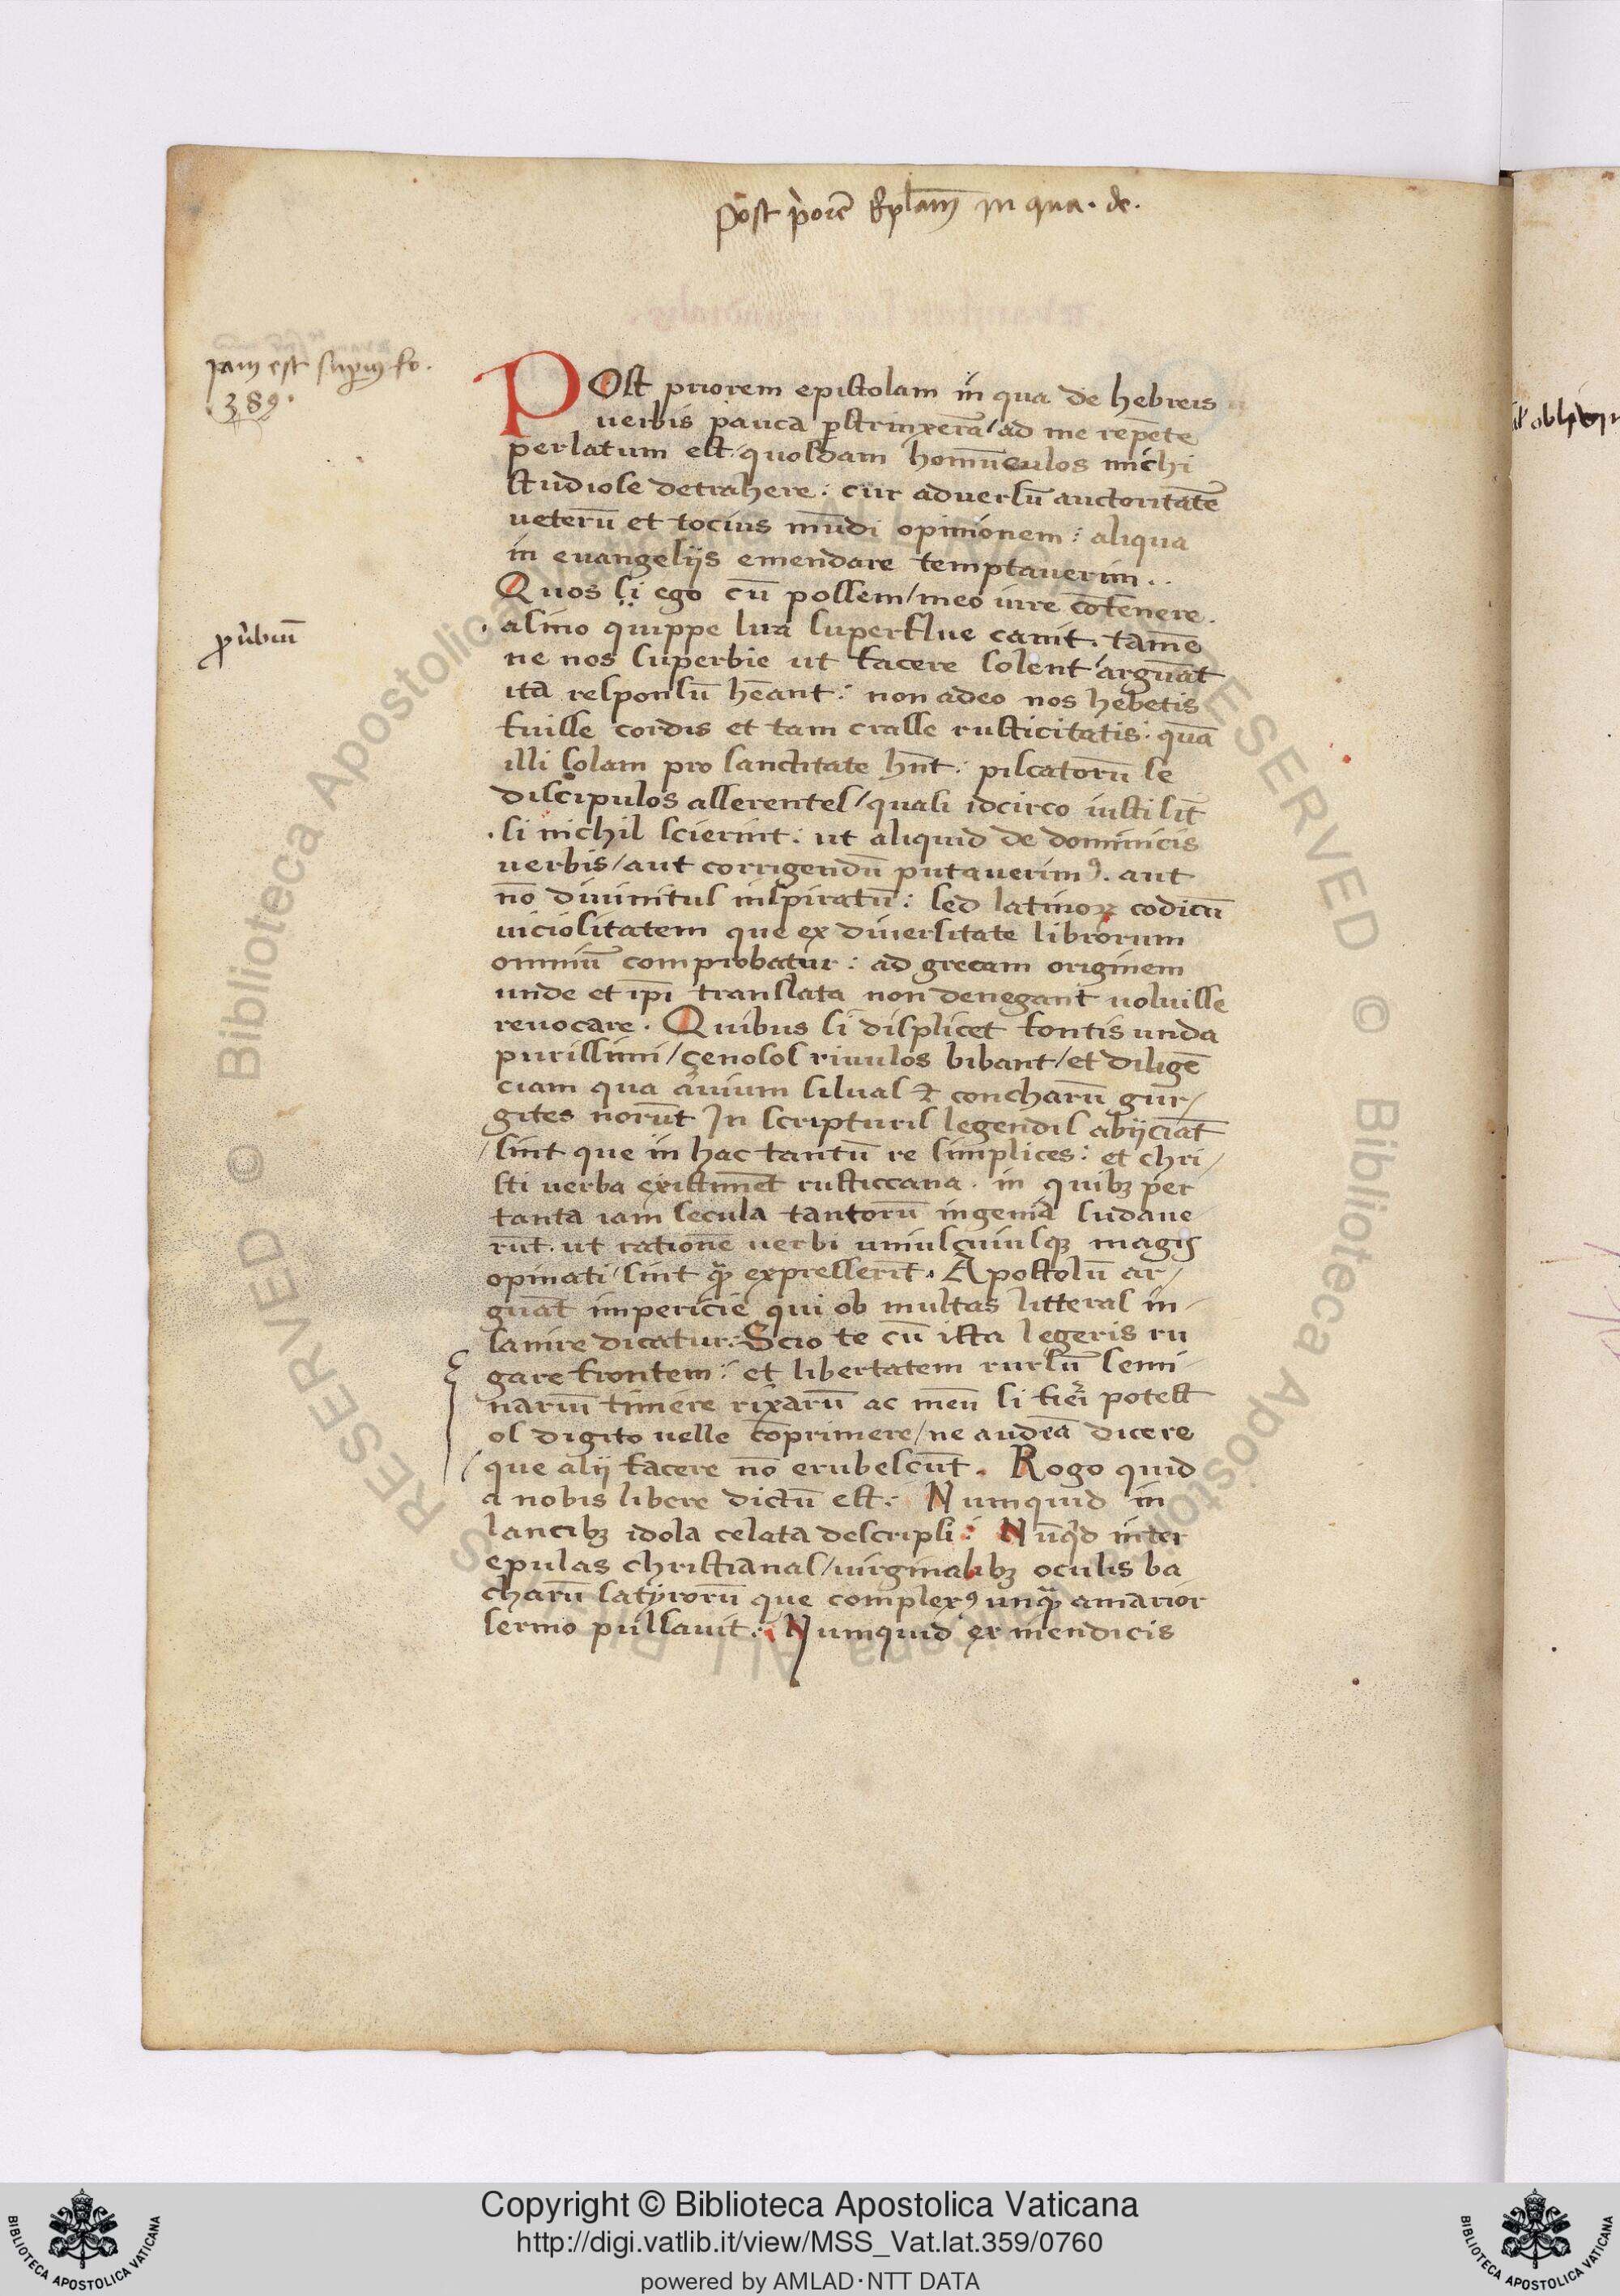 Post p̀orē Ep̄lam̄ in qua. de.
Jam est supius fo.
389.
POst priorem epistolam in qua de hebreis
uerbis pauca pstrinxerā/ad me repēte
perlatum est: quosdam homūculos michi
studiose detrahere: cur aduersū auctoritatē
ueterū et tocius mūdi opinionem: aliqua
in euangelijs emendare temptauerim..
Quos si ego cū possem/meo iure cōtēnere.
asino quippe lira superflue canit. tamē
ꝓūbiū
ne nos superbie ut facere solent arguāt
ita responsū hēant: non adeo nos hebetis
fuisse cordis et tam crasse rusticitatis: quā
illi solam pro sanctitate hn̄t: piscatorū se
discipulos asserentes/quasi idcirco iusti sīt
.si nichil scierint: ut aliquid de dominicis
uerbis/aut corrigendū putauerimꝰ. aut
nō diuinitus inspiratū: sed latinoꝝ codicū
uiciositatem que ex diuersitate librorum
omniū comprobatur: ad grecam originem
unde et ip̄i translata non denegant uoluisse
reuocare. Quibus si displicet fontis unda
purissimi/cenosos riuulos bibant/et diligē
ciam qua auium siluas ⁊ concharū gur/
gites norūt In scripturis legendis abijciāt
/sint que in hac tantū re simplices: et chri/
sti uerba existimēt rusticcana. in quibꝫ per
tanta iam secula tantorū ingenia sudaue/
rūt. ut rationē uerbi uniuscuiusqꝫ magis
opinati/sint qꝫ̄ expresserīt. Apostolū ar/
guāt impericie qui ob multas litteras in/
sanire dicatur: Scio te cū ista legeris ru
gare frontem: et libertatem rursū semi/
nariū timere rixarū ac meū si fieri potest
os digito uelle cōprimere/ne audeā dicere
/que alij facere nō erubescūt. Rogo quid
a nobis libere dictū est: Numquid in
lancibꝫ idola celata descripsi: Nūqd inter
epulas christianas/uirginalibꝫ oculis ba
charū satyrorū que complexꝰ unqꝫ̄ amarior
sermo pulsauit: Numquid ex mendicis
Copyright © Biblioteca Apostolica Vaticana
http://digi.vatlib.it/view/MSS_Vat.lat.359/0760
powered by AMLAD·NTT DATA
BIBLIOTECA APOSTOLICA VATICANA
BIBLIOTECA APOSTOLICA VATICANA